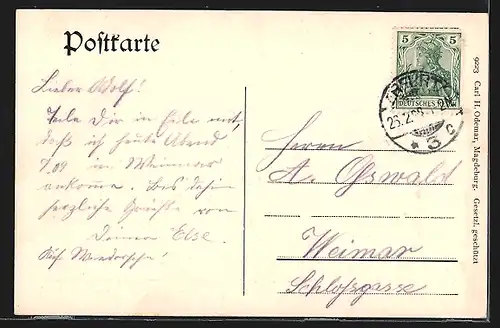 Postkarte
Lieber Adolf!
Teile Dir in Eile mit,
daß ich heute Abend
7.09 in Weimar
ankomme. Bis dahin
herzliche Grüße von
Deiner Else.
5
5
ERFURT
DEUTSCHES REICH
25.2.09
* 3 c
Herrn
A. Oßwald
Weimar
Schloßgasse
9223 Carl H. Odemar, Magdeburg. Gesetzl. geschützt